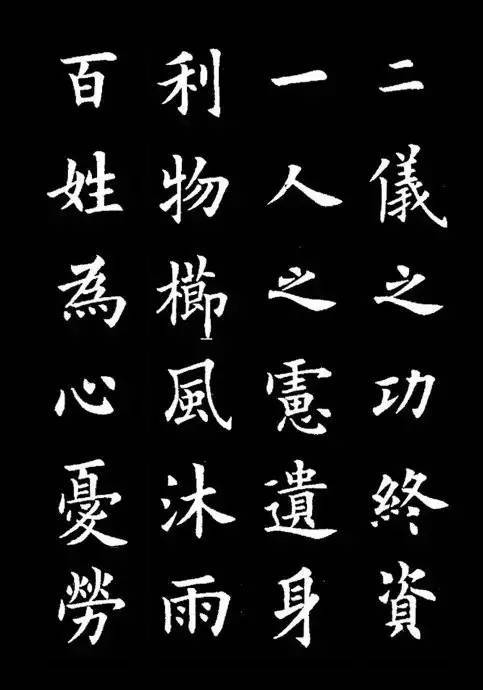 二儀之功終資
一人之慮遺身
利物櫛風沐雨
百姓為心憂勞